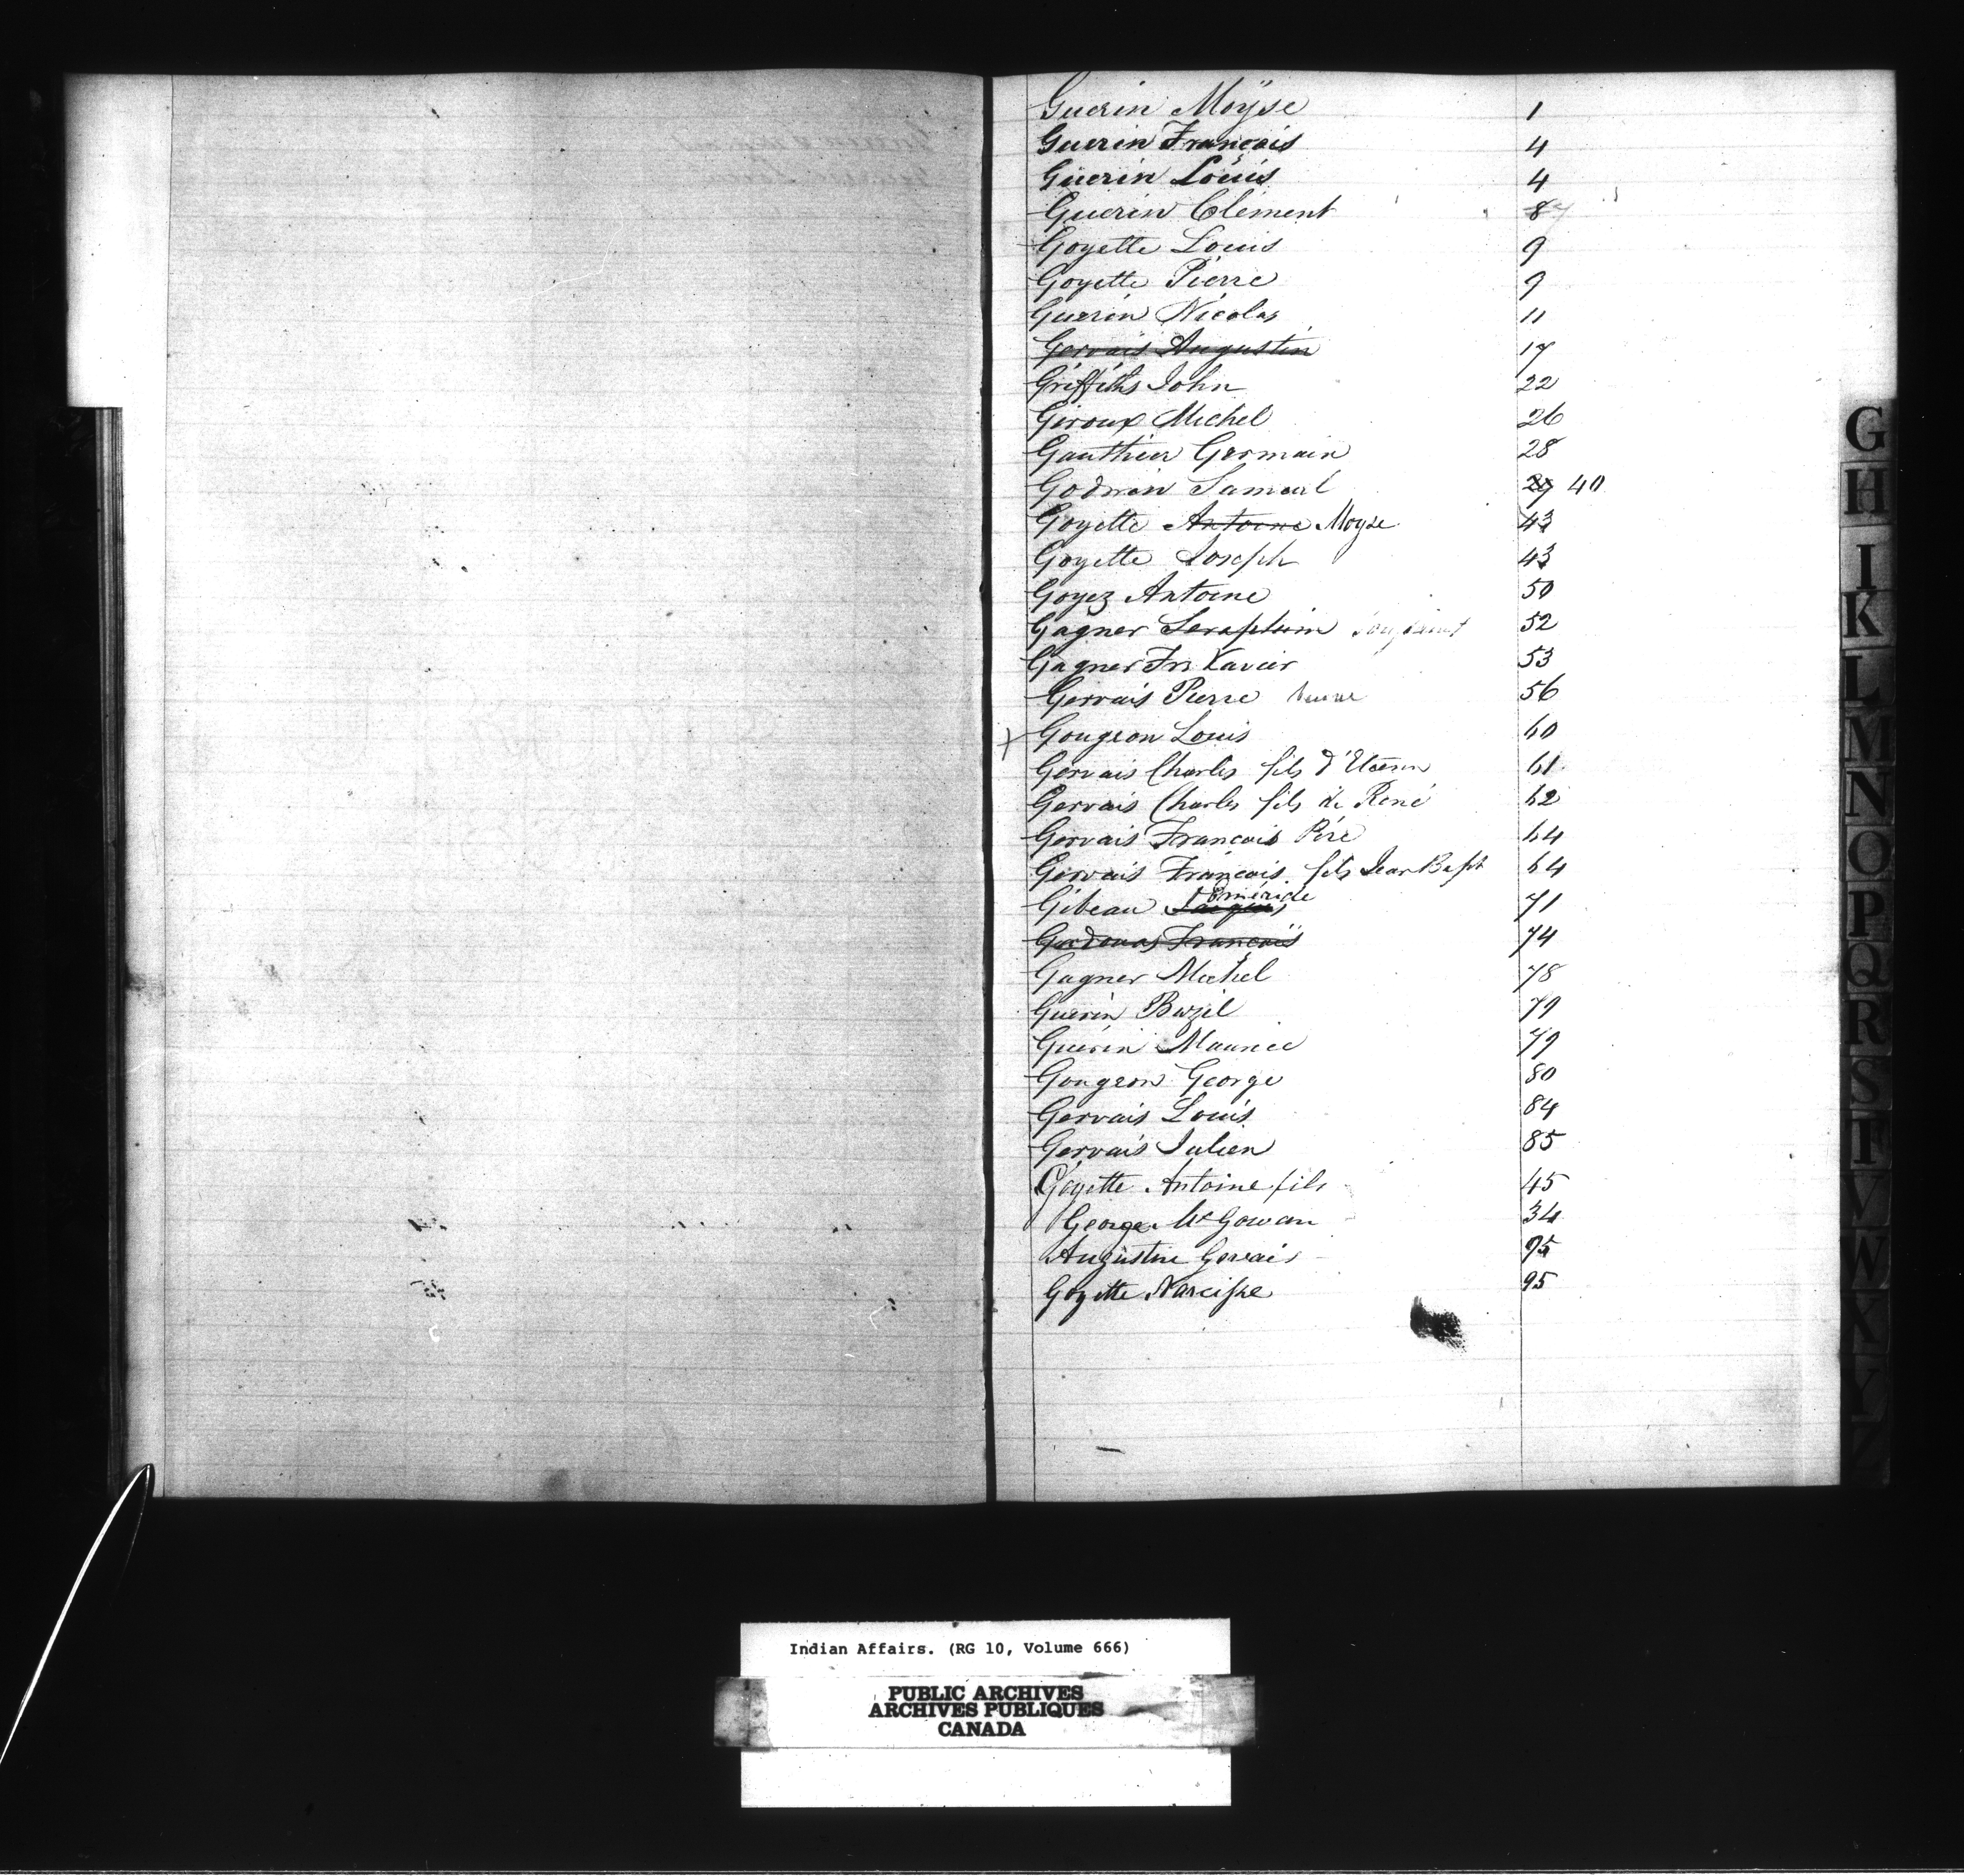 Guerin Moÿse 1
Guerin François 4
Guerin Louis 4
Guerin Clement 8
Goyette Louis 9
Goyette Pierre 9
Guerin Nicolas 11
Gervais Augustin 17
Griffiths John 22
Giroux Michel 26
Gauthier Germain 28
Godwin Samuel 29 40
Goyette Antoine Moyse 43
Goyette Joseph 43
Goyez Antoine 50
Gagner Seraphim 52
Gagner Frs Xavier 53
Gervais Pierre 56
Gougeon Louis 60
Gervais Charles fils d'Etienne 61
Gervais Charles fils de René 62
Gervais Francois Père 64
Gervais François fils Jean Bapt 64
Eméride
Gibeau Jacques 71
François 74
Gagner Michel 78
Guerin Bazil 79
Guerin Maurice 79
Gougeon George 80
Gervais Louis 84
Gervais Julien 85
Goyette Antoine fils 45
George McGowan 34
Augustin Gervais 95
Goyette Narcisse 95
G
H
I
K
L
M
N
O
P
Q
R
S
T
V
W
X
Y
Z
Indian Affairs. (RG 10, Volume 666)
PUBLIC ARCHIVES
ARCHIVES PUBLIQUES
CANADA